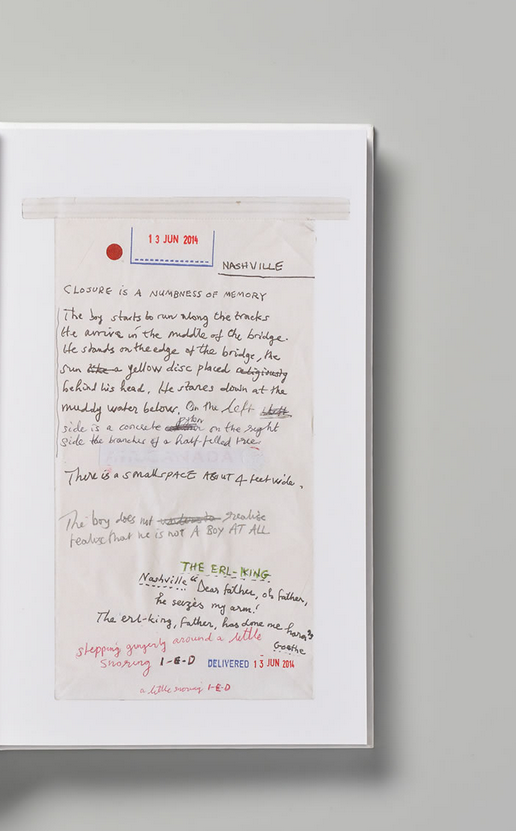 13 JUN 2014
NASHVILLE
CLOSURE IS A NUMBNESS OF MEMORY
The boy starts to run along the tracks
He arrive in the middle of the bridge.
He stands on the edge of the bridge, the
sun like a yellow disc placed
behind his head. He stares down at the
muddy water below. On the left
side is a concrete on the right
side the branches of a half felled tree
There is a small SPACE ABOUT 4 feet wide.
The boy does not realise
that he is not A BOY AT ALL
THE ERL-KING
Nashville "Dear father, oh father,
he seizes my arm!
The erl-king, father, has done me harm"
Goethe
stepping gingerly around a little
snoring I-E-D
DELIVERED 13 JUN 2014
a little snoring I-E-D